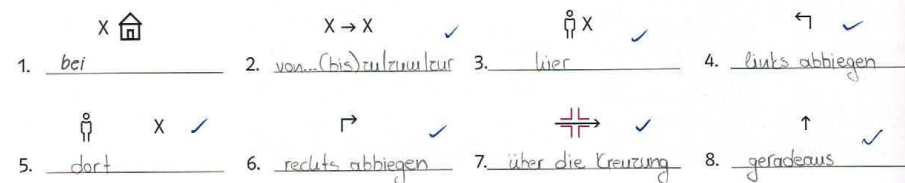 1. bei 2. von...(bis) zu/zum/zur 3. hier 4. links abbiegen
5. dort 6. rechts abbiegen 7. über die Kreuzung 8. geradeaus